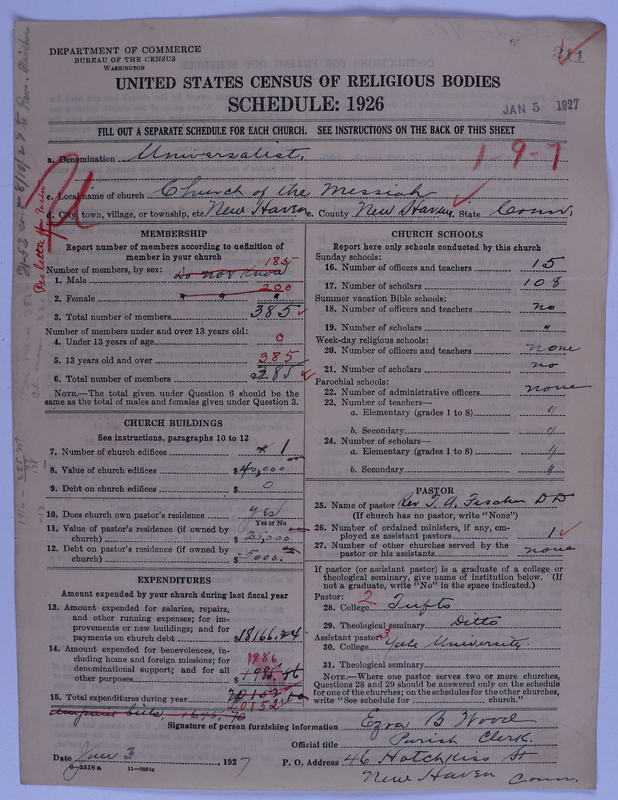 DEPARTMENT OF COMMERCE
BUREAU OF THE CENSUS
WASHINGTON
211
UNITED STATES CENSUS OF RELIGIOUS BODIES
SCHEDULE: 1926
JAN 5 1927
FILL OUT A SEPARATE SCHEDULE FOR EACH CHURCH. SEE INSTRUCTIONS ON THE BACK OF THIS SHEET
a. Denomination Universalist.
1-9-7
c. Local name of church Church of the Messiah
d. City, town, village, or township, etc New Haven e. County New Haven, State Conn.
MEMBERSHIP
Report number of members according to definition of member in your church
Number of members, by sex: Do not know 185
1. Male
2. Female " " " 200
3. Total number of members 385
Number of members under and over 13 years old:
4. Under 13 years of age 0
5. 13 years old and over 385
6. Total number of members 385
NOTE.—The total given under Question 6 should be same as the total of males and females given under Question 3.
CHURCH BUILDINGS
See instructions, paragraphs 10 to 12
7. Number of church edifices 1
8. Value of church edifices $40,000
9. Debt on church edifices $ 0
10. Does church own pastor's residence yes
Yes or No
11. Value of pastor's residence (if owned by church) $
12. Debt on pastor's residence (if owned by church) $5000.
EXPENDITURES
Amount expended by your church during last fiscal year
13. Amount expended for salaries, repairs, and other running expenses; for improvements or new buildings; and for payments on church debt $18166.24
14. Amount expended for benevolences, including home and foreign missions; for denominational support; and for all other purposes 1986
15. Total expenditures during year 20152
CHURCH SCHOOLS
Report here only schools conducted by this church
Sunday schools:
16. Number of officers and teachers 15
17. Number of scholars 108
Summer vacation Bible schools:
18. Number of officers and teachers no
19. Number of scholars "
Week-day religious schools:
20. Number of officers and teachers none
21. Number of scholars no
Parochial schools:
22. Number of administrative officers none
23. Number of teachers—
a. Elementary (grades 1 to 8) "
b. Secondary "
24. Number of scholars—
a. Elementary (grades 1 to 8) "
b. Secondary "
PASTOR
25. Name of pastor Rev. T. A. Fischer D D
(If church has no pastor, write "None")
26. Number of ordained ministers, if any, employed as assistant pastors 1
27. Number of other churches served by the pastor or his assistants none
If pastor (or assistant pastor) is a graduate of a college or theological seminary, give name of institution below. (If not a graduate, write "No" in the space indicated.)
Pastor:
28. College 2 Tufts
29. Theological seminary Ditto
Assistant pastor: 3
30. College Yale University.
31. Theological seminary
NOTE.—Where one pastor serves two or more churches, Questions 28 and 29 should be answered only on the schedule for one of the churches; on the schedules for the other churches, write "See schedule for church."
Signature of person furnishing information Ezra B Wood
Official title Parish Clerk.
Date Jan 3, 1927
P. O. Address 46 Hotchkiss St
New Haven Conn.
8—5518a 11—9034a